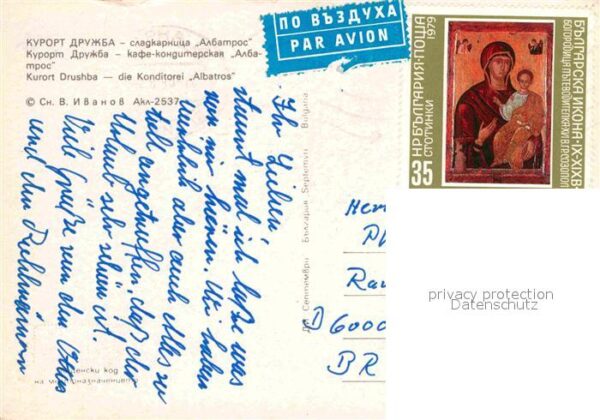 КУРОРТ ДРУЖБА – сладкарница „Албатрос"
Курорт Дружба – кафе-кондитерская „Алба-
трос"
Kurort Drushba — die Konditorei „Albatros"
© Сн. В. Иванов Акл-2537
ПО ВЪЗДУХА
PAR AVION
НР БЪЛГАРИЯ·ПОЩА
1979
35
СТОТИНКИ
БЪЛГАРСКА ИКОНА·IX-XIX В·
БОГОРОДИЦА ПЪТЕВОДИТЕЛКА
Ihr Lieben,
stimmt mal ich lasse was
von mir hören. Wir haben
weshalb aber auch Alles so
toll angetroffen, daß der
Urlaub sehr schön ist.
Viele Grüße von den
und den
ДП Септември България Septemvri Bulgaria
D 6000
BR
пенски код
на местоназначението
privacy protection
Datenschutz